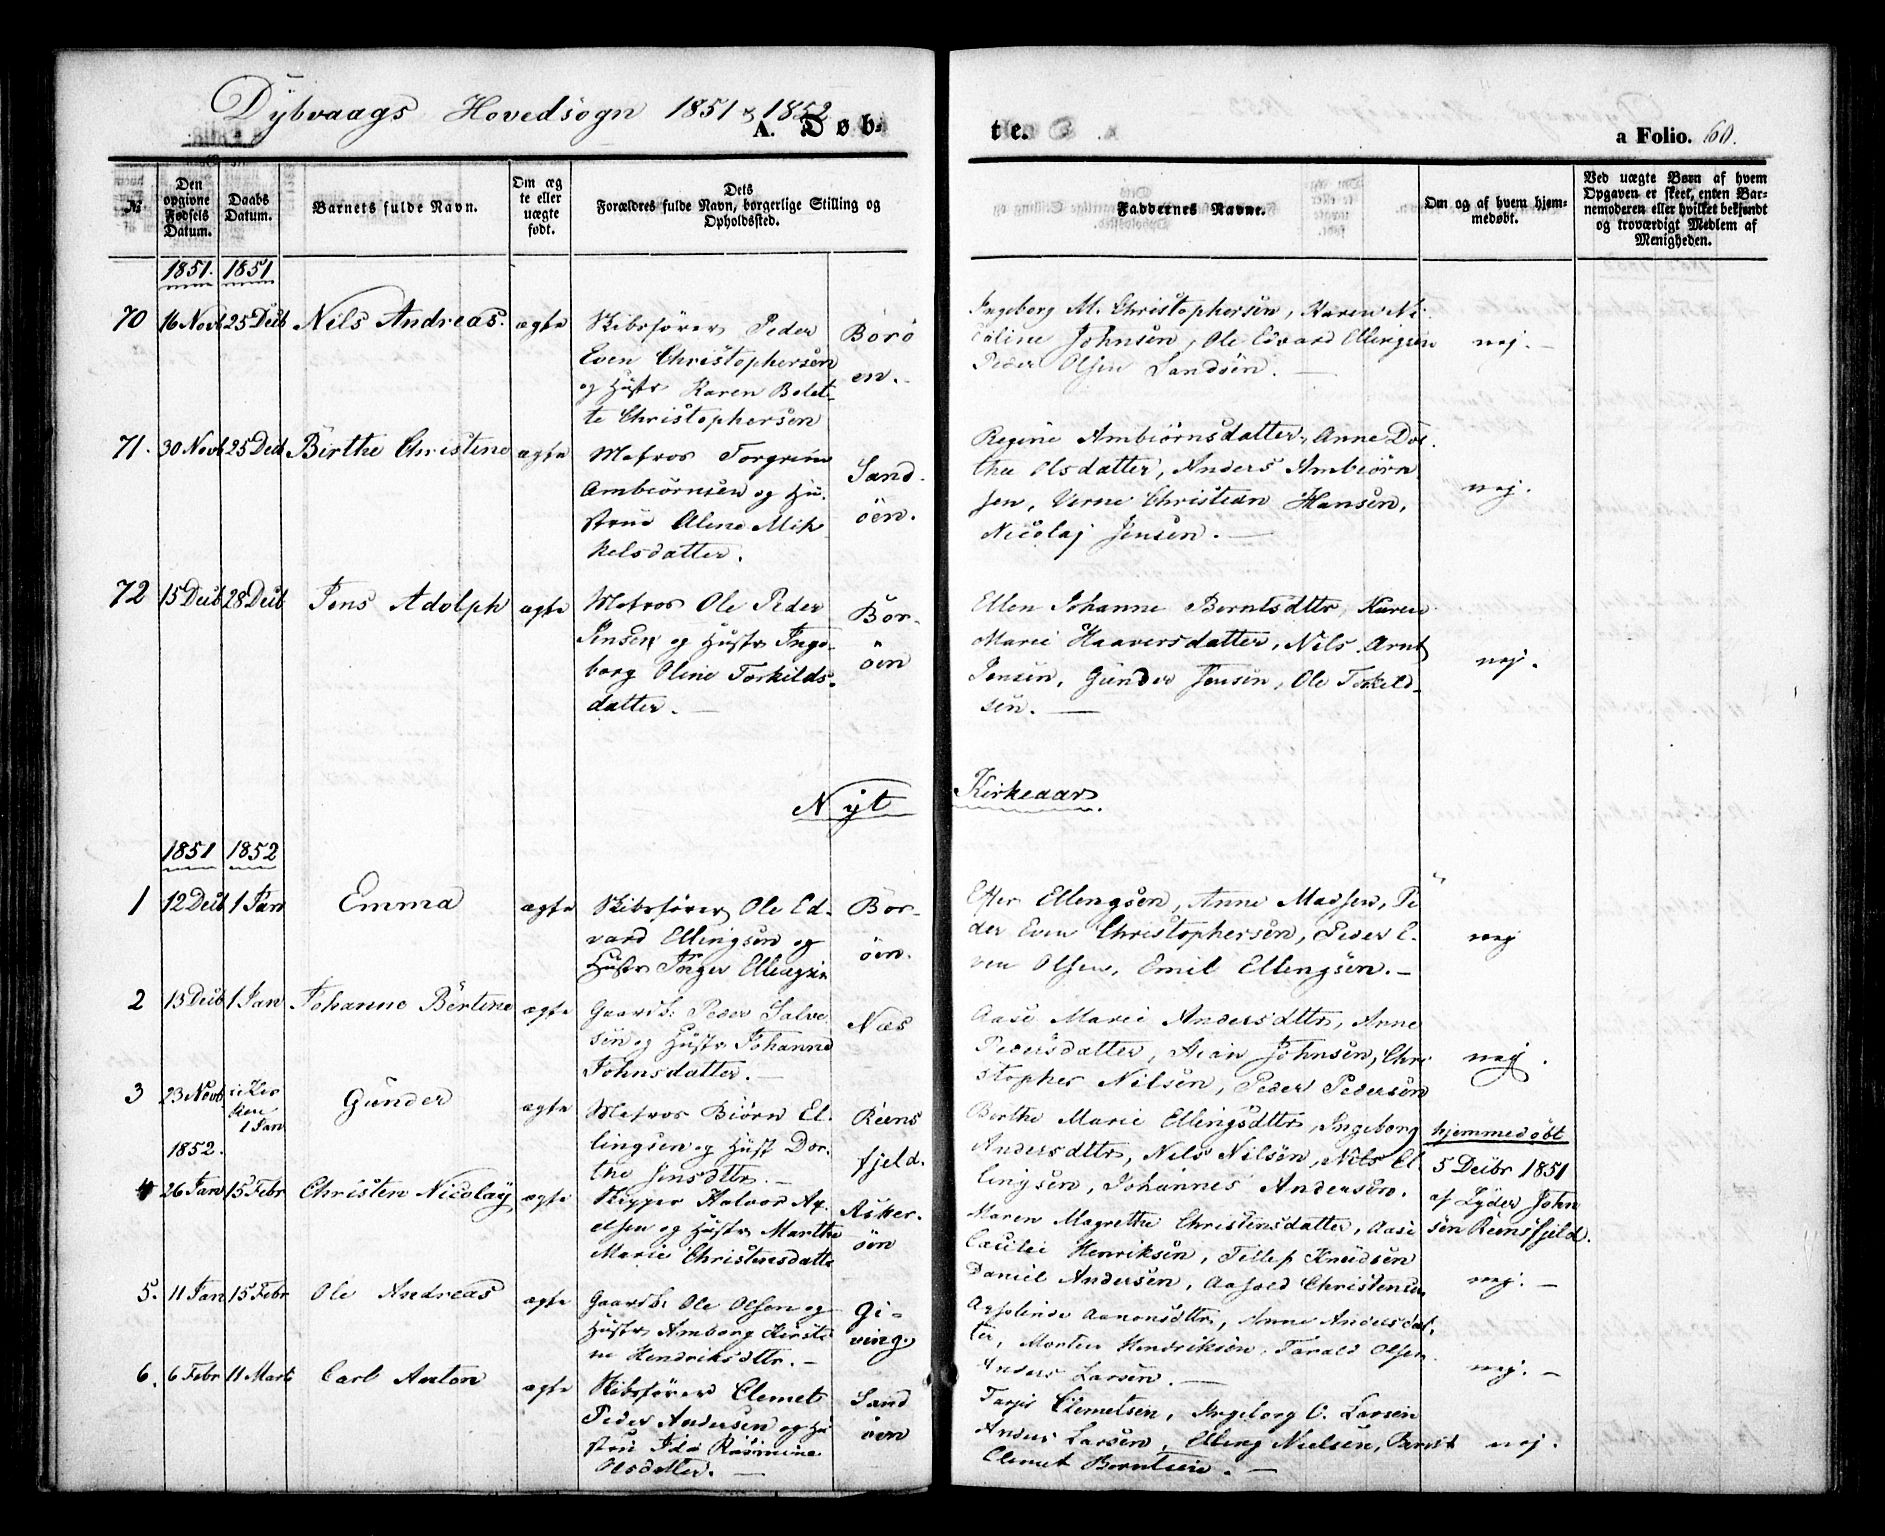 Dybvaags Hovedsogn 1851 & 1852
A. Døb-
te.
a Folio. 60.
№.
Den opgivne Fødsels Datum.
Daabs Datum.
Barnets fulde Navn.
Om ægte eller uægte født.
Dets Forældres fulde Navn, borgerlige Stilling og Opholdssted.
Faddernes Navne.
Om og af hvem hjemmedøbt.
Ved uægte Børn af hvem Opgaven er skeet, enten Barnemoderen eller hvilket bekjendt og troværdigt Medlem af Menigheden.
1851. 1851
70 16 Novb 25 Decb Nils Andreas. ægte
Skibsfører Peder
Even Christophersen
og Hustr Karen Bolet-
te Christophersen
Borö
en.
Ingeborg M. Christophersen, Karen Ni
coline Johnsen, Ole Edvard Ellingsen
Peder Olsen Sandöen.
nej.
71. 30 Novb 25 Decb Birthe Christine ægte
Matros Torgrim
Ambiörnsen og Hu-
strue Aline Mik
kelsdatter.
Sand-
öen.
Regine Ambiörnsdatter, Anne Dor-
thea Olsdatter, Anders Ambiörn
sen, Verne Christian Hansen,
Nicolaj Jensen.
nej.
72 15 Decb 28 Decb Jens Adolph ægte
Matros Ole Peder
Jensen og Hustr Inge-
borg Oline Torkilds-
datter.
Bor-
öen
Ellen Johanne Berntsdttr, Karen
Marie Haaversdatter, Nils Arnt
Jensen, Gunder Jensen, Ole Torkild-
sen.
nej.
Nyt Kirkeaar.
1851 1852
1 12 Decb 1 Jan Emma ægte
Skibsfører Ole Ed-
vard Ellingsen og
Hustr Inger Ellingsen
Bor-
öen.
Ester Ellengsen, Anne Madsen, Pe
der Even Christophersen, Peder E-
ven Olsen, Emil Ellengsen.
nej
2 13 Decb 1 Jan Johanne Bertine ægte
Gaardb: Peder Salve
sen og Hustr Johanne
Johnsdatter.
Næs
Aase Marie Andersdttr, Anne
Pedersdatter, John Johnsen, Chri
stopher Nilsen, Peder Pedersen
nej.
3 23 Novb i Kir
ken
1 Jan
Gunder ægte
Matros Biörn El-
lingsen og Hust Dor-
the Jensdttr.
Reens
fjeld.
Berthe Marie Ellingsdttr, Ingeborg
Andersdttr, Nils Nilsen, Nils El-
lingsen, Johannes Andersen.
hjemmedøbt
5 Decbr 1851
af Lyder John
sen Reensfjeld.
1852.
4 26 Jan 15 Febr Christen Nicolay ægte
Skipper Halvor Ax-
elsen og Hustr Marthe
Marie Christensdatte
Asker-
öen
Maren Magrethe Christensdatter, Aase
Cecilie Henriksen, Tellef Knudsen
Daniel Andersen, Aasold Christensen
nej.
5. 11 Jan 15 Febr Ole Andreas ægte
Gaardb: Ole Olsen og
Hustr Amborg Kirsti
ne Hendriksdttr.
Gi-
ving
Axeline Aanonsdttr, Anne Andersdat-
ter, Morten Hendriksen, Tarald Olsen
Anders Larsen.
nej.
6. 6 Febr 11 Marts Carl Anton ægte
Skibsfører Clemet
Peder Andersen og Hu
strue Ida Rasmine
Olsdatter.
Sand
öen
Tarjer Clemetsen, Ingeborg C. Larsen
Anders Larsen, Elling Nielsen, Berndt
Clemet Berntsen.
nej.